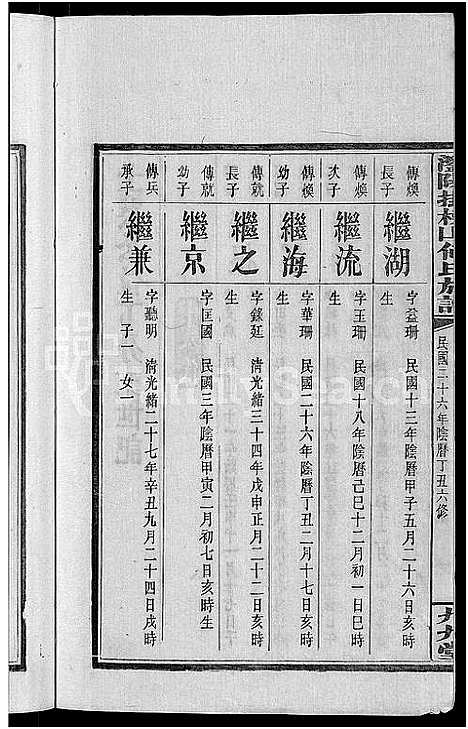 民國三十六年陰曆丁丑六修
傳煥
長子
繼湖
字益珊 民國十三年陰曆甲子五月二十六日亥時
生
傳煥
次子
繼流
字玉珊 民國十八年陰曆己巳十二月初一日巳時
生
傳煥
幼子
繼海
字華珊 民國二十六年陰曆丁丑二月十七日亥時
生
傳就
長子
繼之
字錄廷 清光緒三十四年戊申正月二十二日亥時
生
傳就
幼子
繼京
字匡國 民國三年陰曆甲寅二月初七日亥時生
傳兵
承子
繼兼
字聽明 清光緒二十七年辛丑九月二十四日戌時
生 子一 女一
FamilySearch